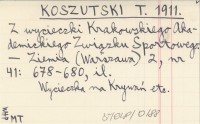 KOSZUTSKI T. 1911.
Z wycieczki Krakowskiego Aka-
demickiego Związku Sportowego.
— Ziemia (Warszawa) 2, nr
41: 678-680, il.
Wycieczka na Krywań etc.
MT